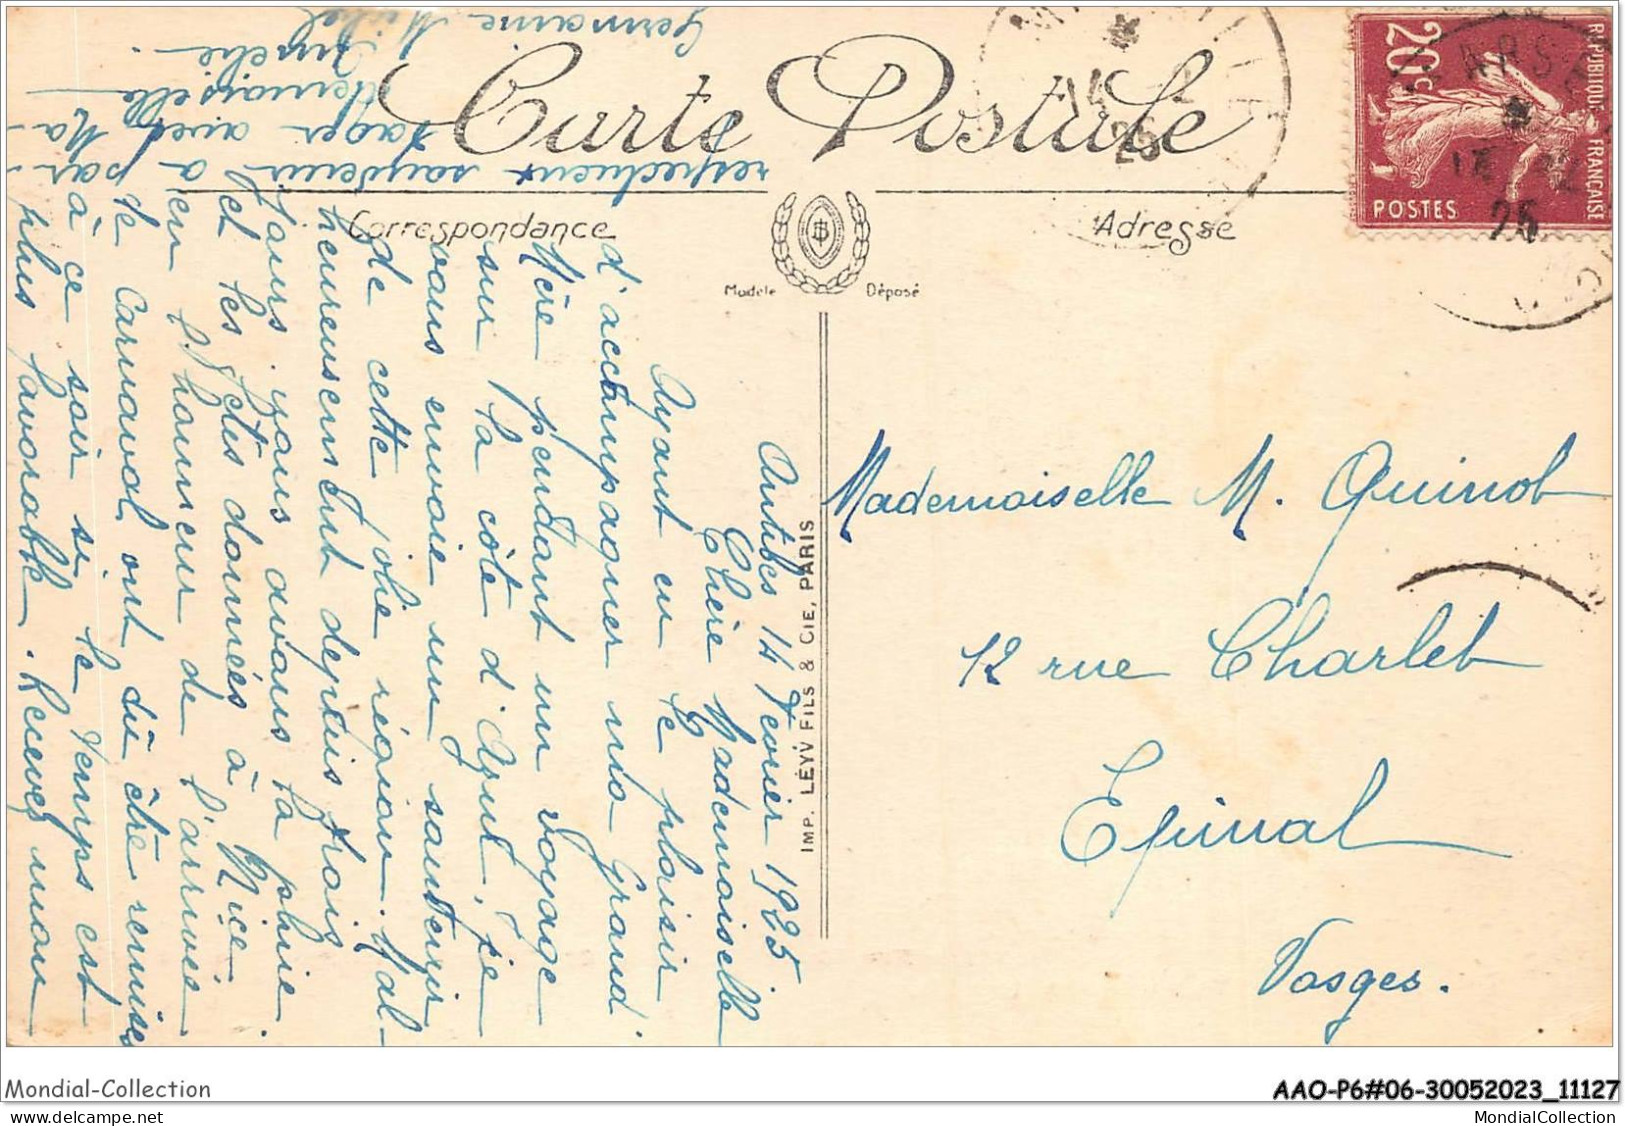 Carte Postale
Correspondance
Adresse
Modèle
Déposé
20c
REPUBLIQUE FRANÇAISE
POSTES
14 2
25
25
Antibes 14 Fevrier 1925
Chère Mademoiselle
Ayant eu le plaisir
d'accompagner ma Grand'
Mère pendant un voyage
sur la côte d'Azur, je
vous envoie un souvenir
de cette jolie région. Mal-
heureusement depuis trois
jours nous avons la pluie.
et les fêtes données à Nice
en l'honneur de l'arrivée
de Carnaval ont dû être remises
à ce soir si le temps est
plus favorable. Recevez mon
respectueux
avec
Germaine Michel
IMP. LÉVY FILS & CIE, PARIS
Mademoiselle M. Quinot
12 rue Charlet
Epinal
Vosges.
Mondial-Collection
AAO-P6#06-30052023_11127
MondialCollection